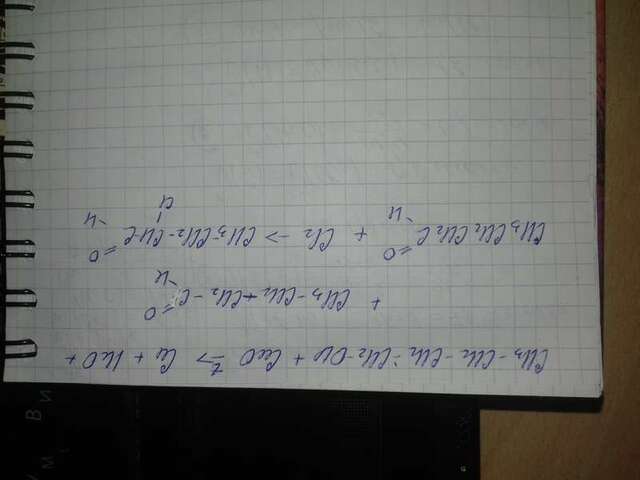 CH3-CH2-CH2-CH2-OH + CuO t→ Cu + H2O +
+ CH3-CH2-CH2-C=O
-H
CH3CH2CH2C=O-H + Cl2 → CH3CH2-CHC=O-H
Cl